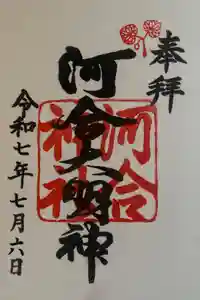 奉拝
河合大明神
河合神社
令和七年七月六日